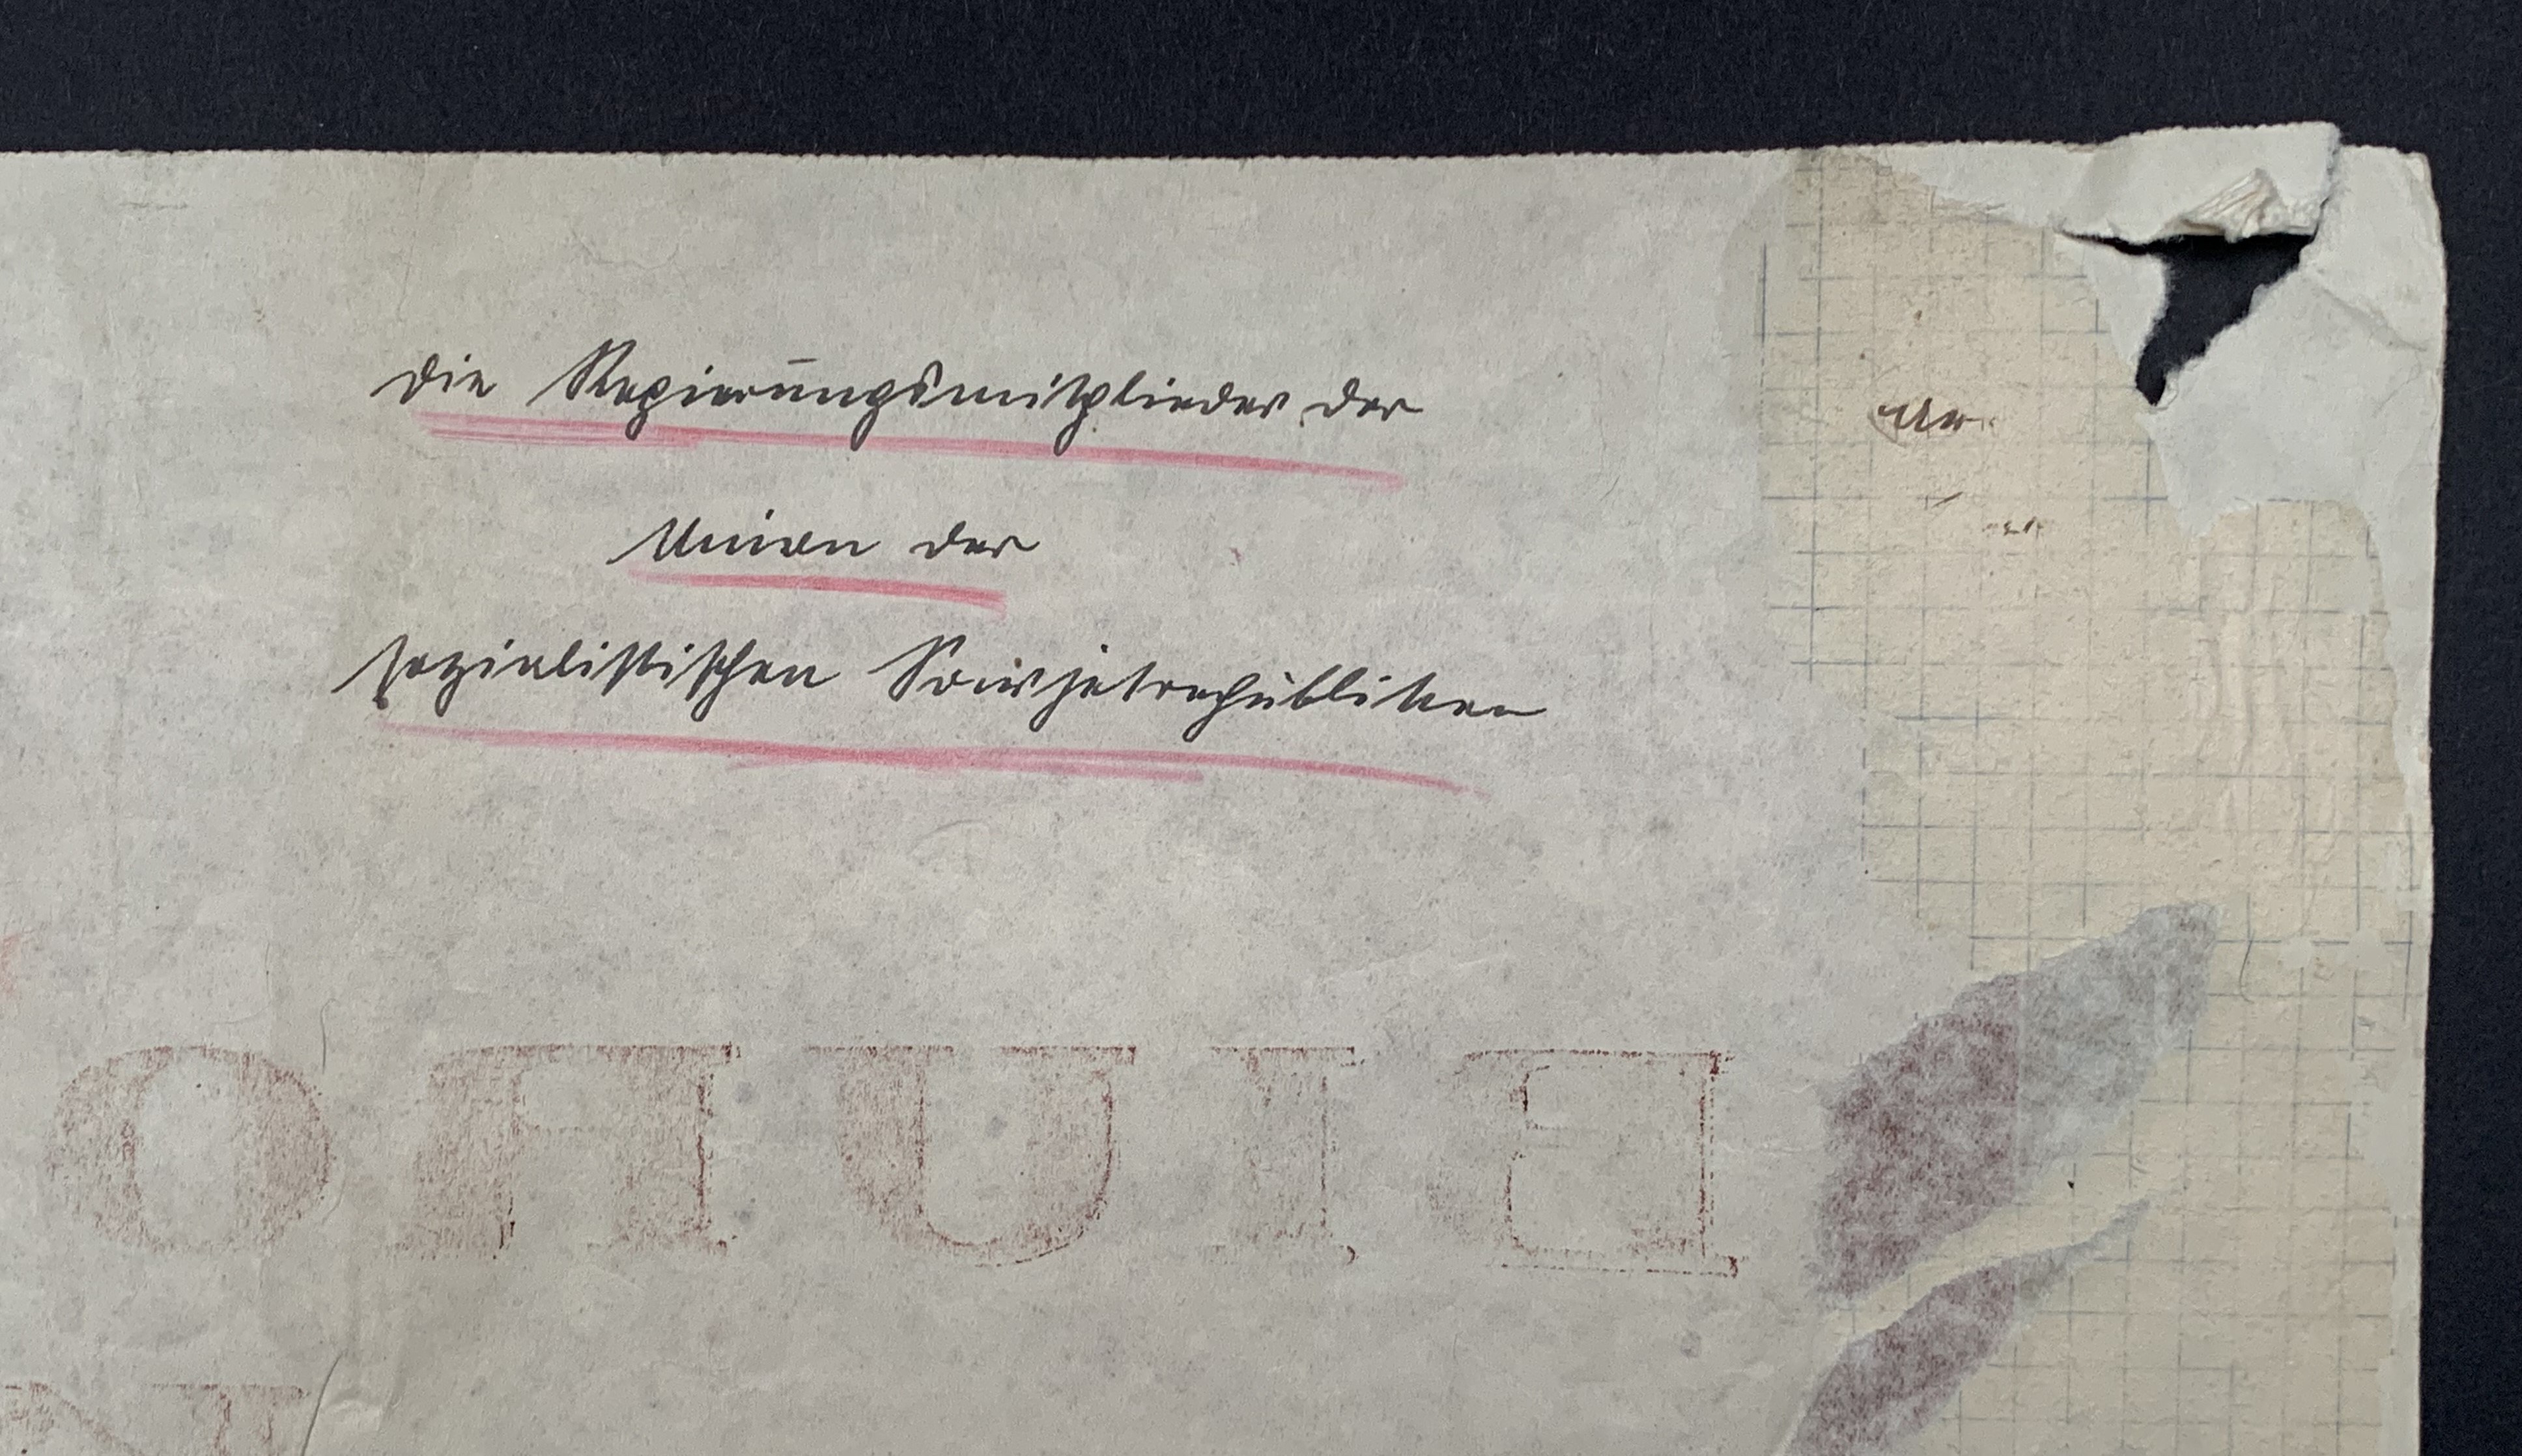 die Regierungsmitglieder der
Union der
sozialistischen Sowjetrepubliken
BIURO